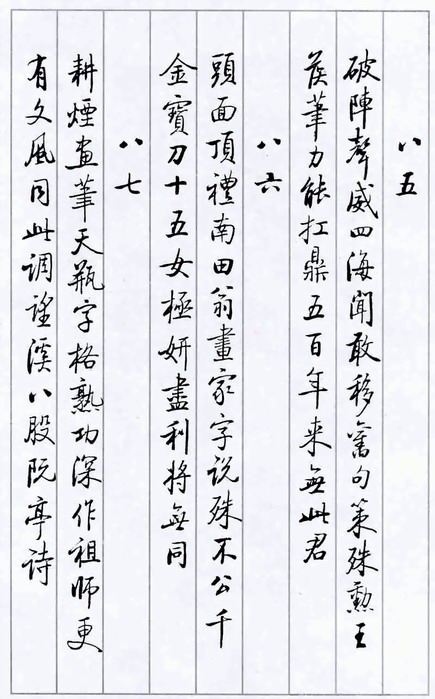 八五
破陣聲威四海聞敢移舊句策殊勲王
侯筆力能扛鼎五百年来無此君
八六
頭面頂禮南田翁畫家字说殊不公千
金寶刀十五女極妍盡利将無同
八七
耕煙畫筆天瓶字格熟功深作祖师更
有文風同此调望溪八股阮亭诗